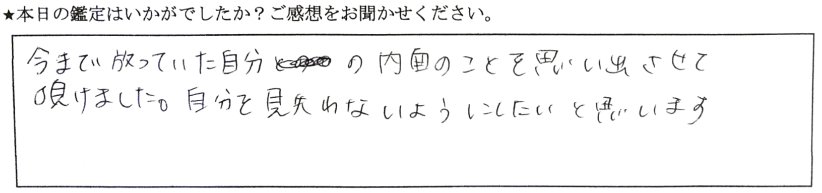 ★本日の鑑定はいかがでしたか？ご感想をお聞かせください。
今まで放っていた自分の内面のことを思い出させて
頂けました。自分を見失わないようにしたいと思います